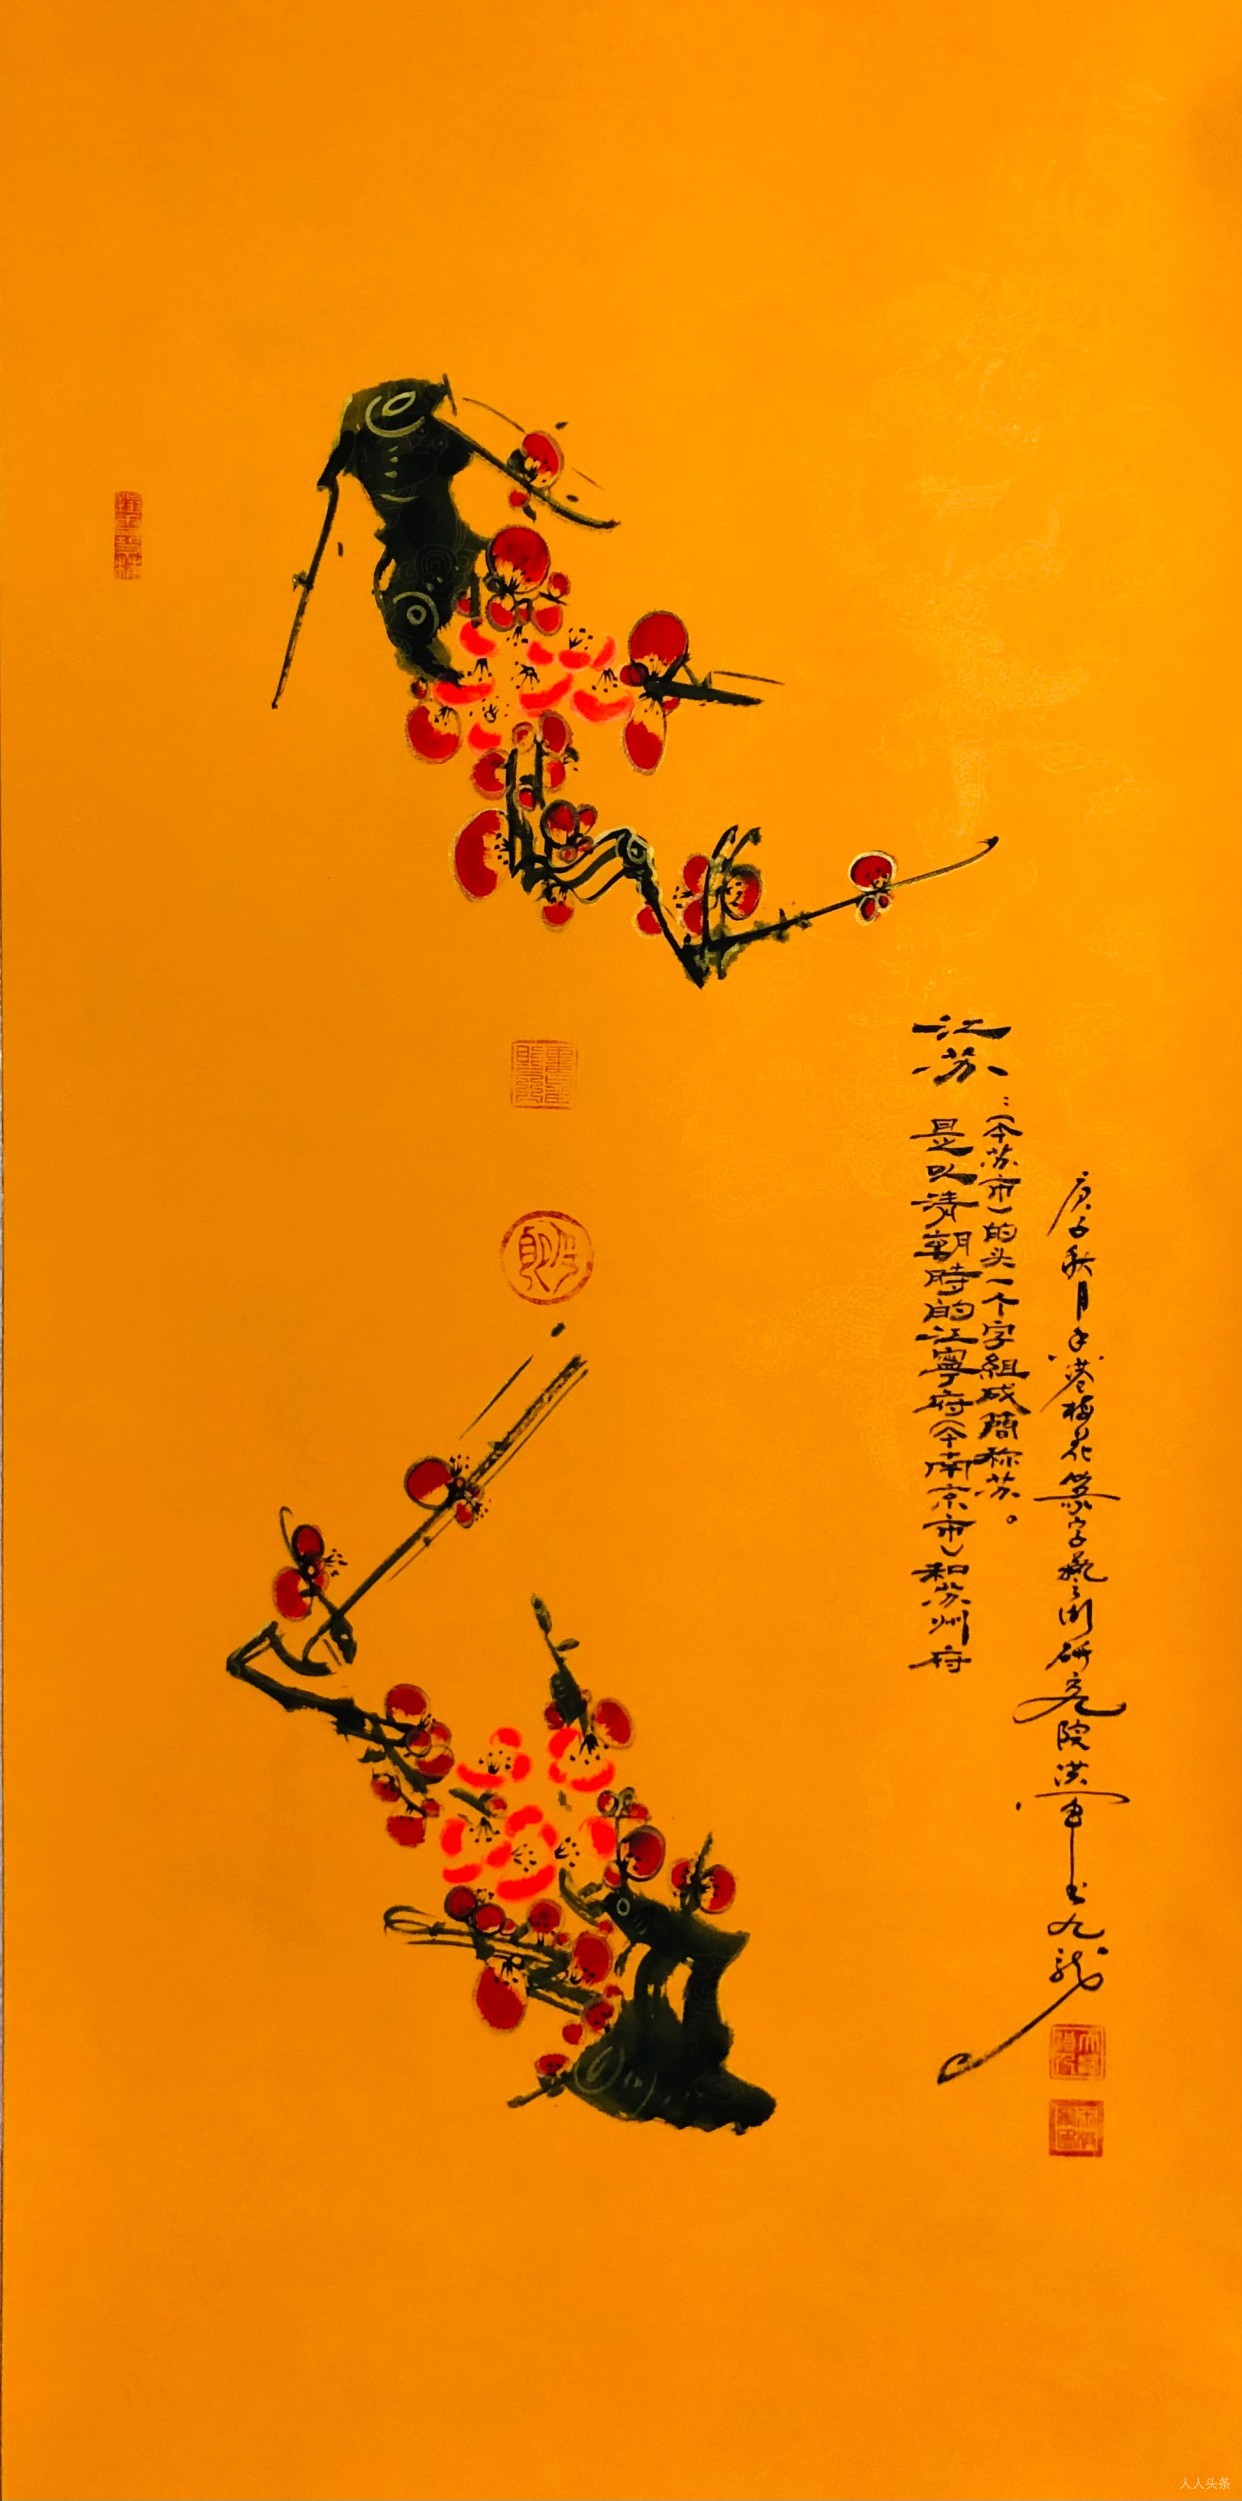 江苏：
是以清朝時的江寧府（今南京市）和苏州府
（今苏市）的头一个字組成簡称苏。
庚子秋月香港梅花篆字藝術研究院洪军书九龙
人人头条